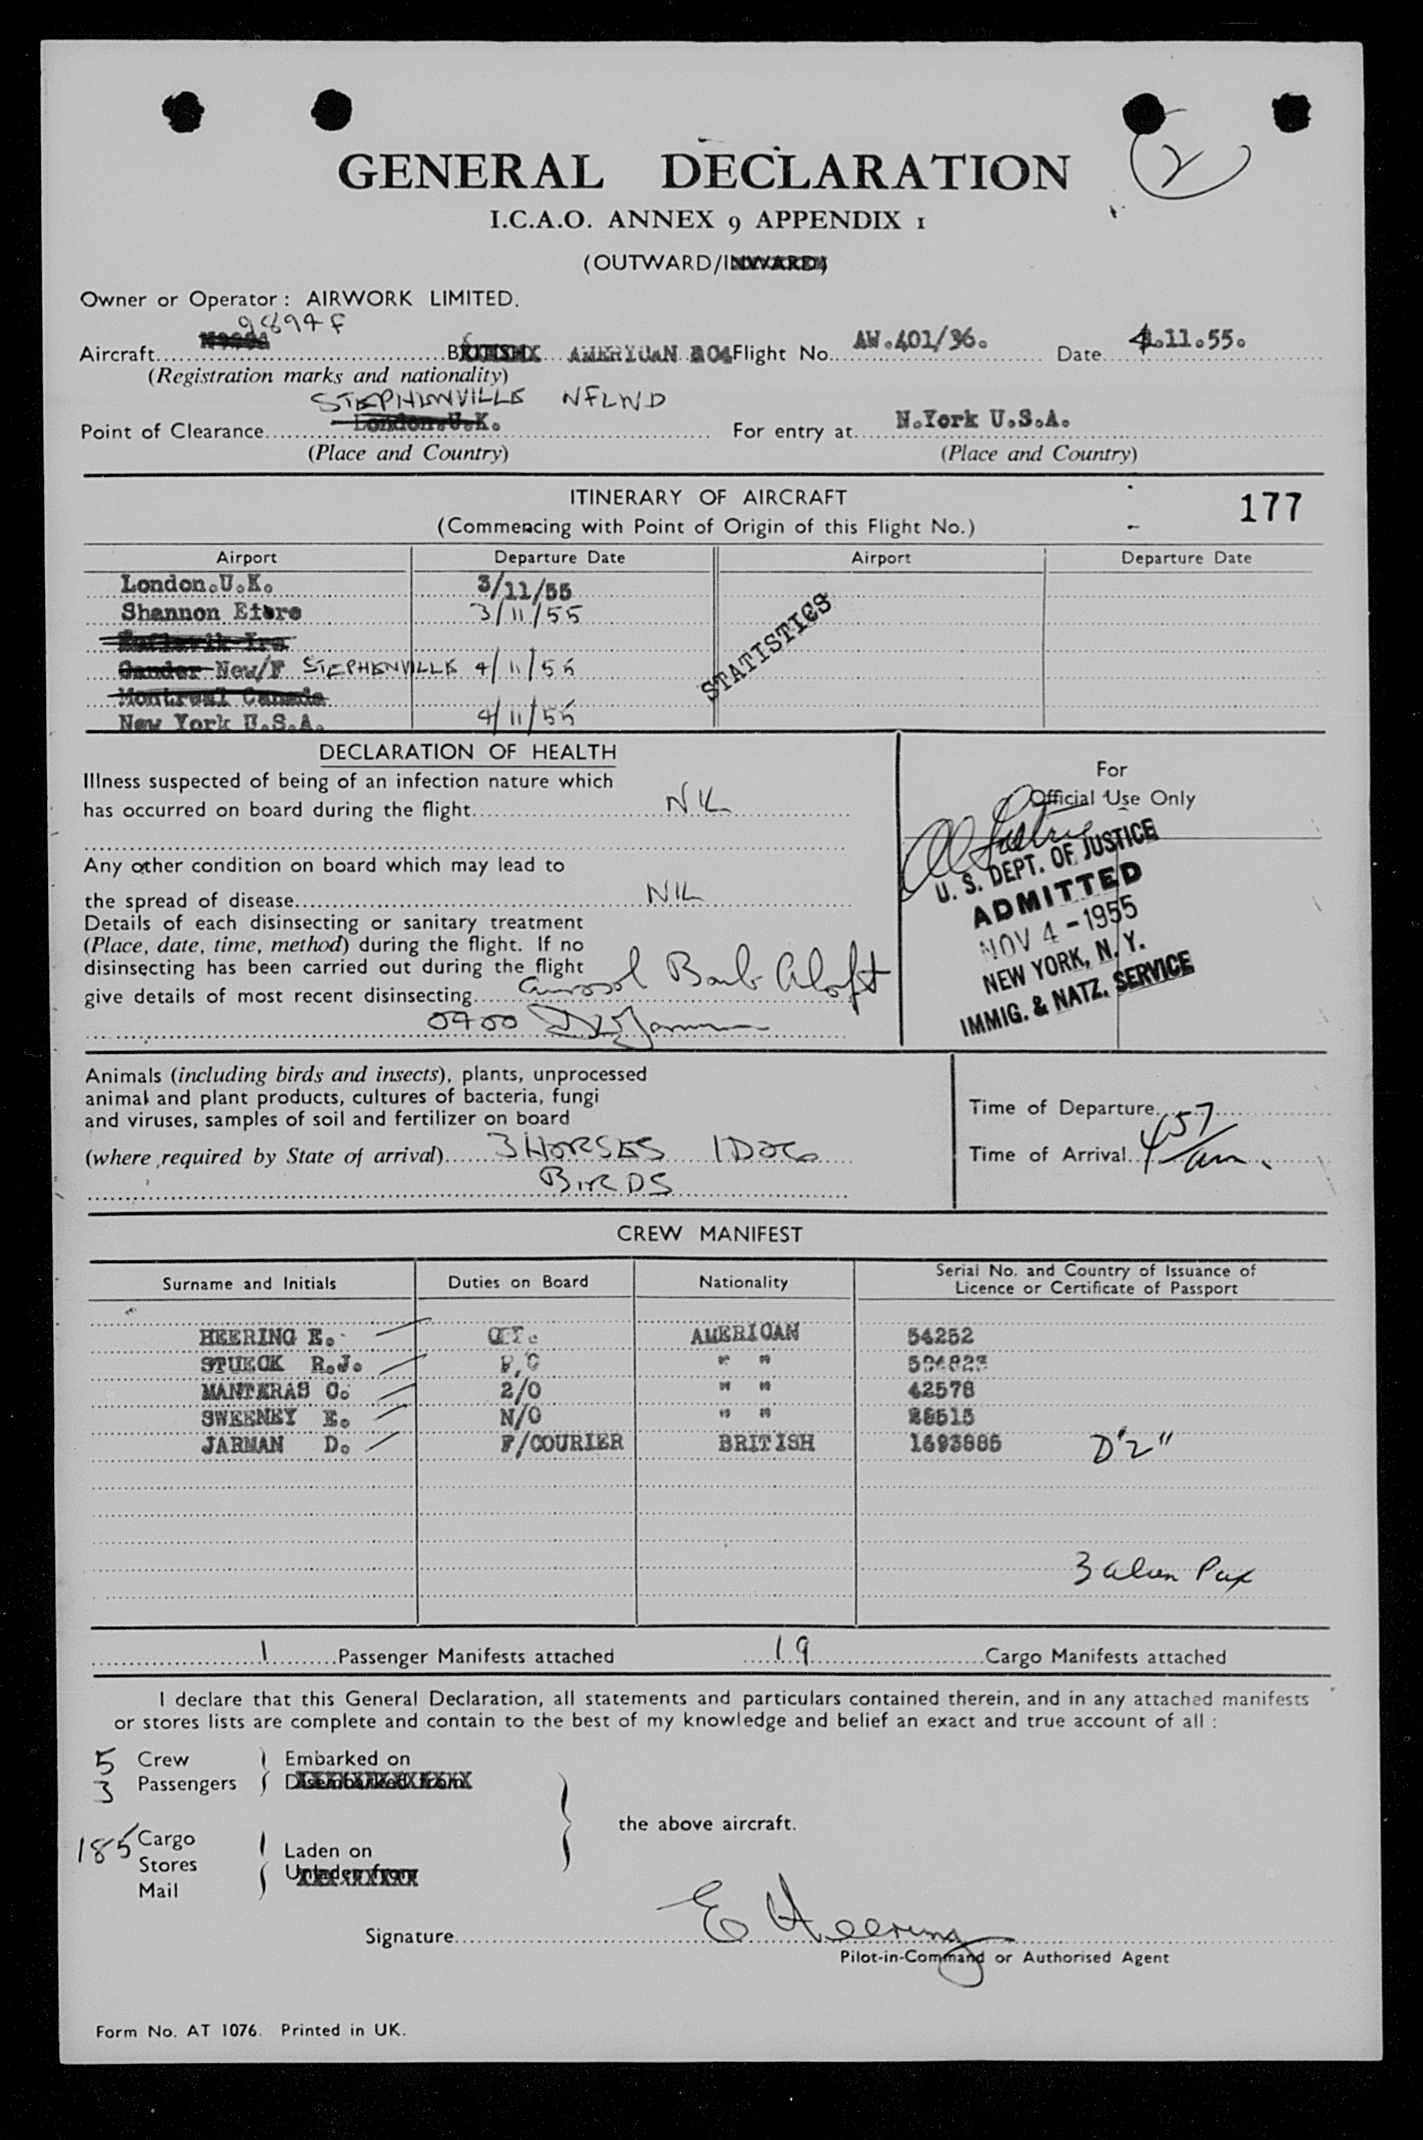 2
GENERAL DECLARATION
I.C.A.O. ANNEX 9 APPENDIX 1
(OUTWARD/INWARD)
Owner or Operator : AIRWORK LIMITED.
9894F
Aircraft BRITISH AMERICAN Flight No. AW.401/36. Date 4.11.55.
(Registration marks and nationality)
STEPHENVILLE NFLND
Point of Clearance London.U.K. For entry at N.York U.S.A.
(Place and Country) (Place and Country)
ITINERARY OF AIRCRAFT
177
(Commencing with Point of Origin of this Flight No.)
Airport Departure Date Airport Departure Date
London.U.K. 3/11/55
Shannon Eire 3/11/55
Keflavik Ire
Gander New/F STEPHENVILLE 4/11/55
Montreal Canada
New York U.S.A. 4/11/55
STATISTICS
DECLARATION OF HEALTH
Illness suspected of being of an infection nature which
has occurred on board during the flight NIL
Any other condition on board which may lead to
the spread of disease NIL
Details of each disinsecting or sanitary treatment
(Place, date, time, method) during the flight. If no
disinsecting has been carried out during the flight
give details of most recent disinsecting Aerosol Bomb Aloft
0900 D Jarman
For
Official Use Only
U. S. DEPT. OF JUSTICE
ADMITTED
NOV 4 - 1955
NEW YORK, N. Y.
IMMIG. & NATZ. SERVICE
Animals (including birds and insects), plants, unprocessed
animal and plant products, cultures of bacteria, fungi
and viruses, samples of soil and fertilizer on board
(where required by State of arrival) 3 HORSES 1 DOG
BIRDS
Time of Departure
Time of Arrival 457 am.
CREW MANIFEST
Surname and Initials Duties on Board Nationality Serial No. and Country of Issuance of
Licence or Certificate of Passport
HEERING E. AMERICAN 54252
STUECK R.J. " "
MANTERAS C. 2/O " " 42578
SWEENEY E. N/O " " 28515
JARMAN D. F/COURIER BRITISH 1693885 D"2"
3 alien Pax
1 Passenger Manifests attached 19 Cargo Manifests attached
I declare that this General Declaration, all statements and particulars contained therein, and in any attached manifests
or stores lists are complete and contain to the best of my knowledge and belief an exact and true account of all :
5 Crew Embarked on
3 Passengers Disembarked from
the above aircraft.
185 Cargo Laden on
Stores Unladen from
Mail
Signature E Heering
Pilot-in-Command or Authorised Agent
Form No. AT 1076. Printed in UK.